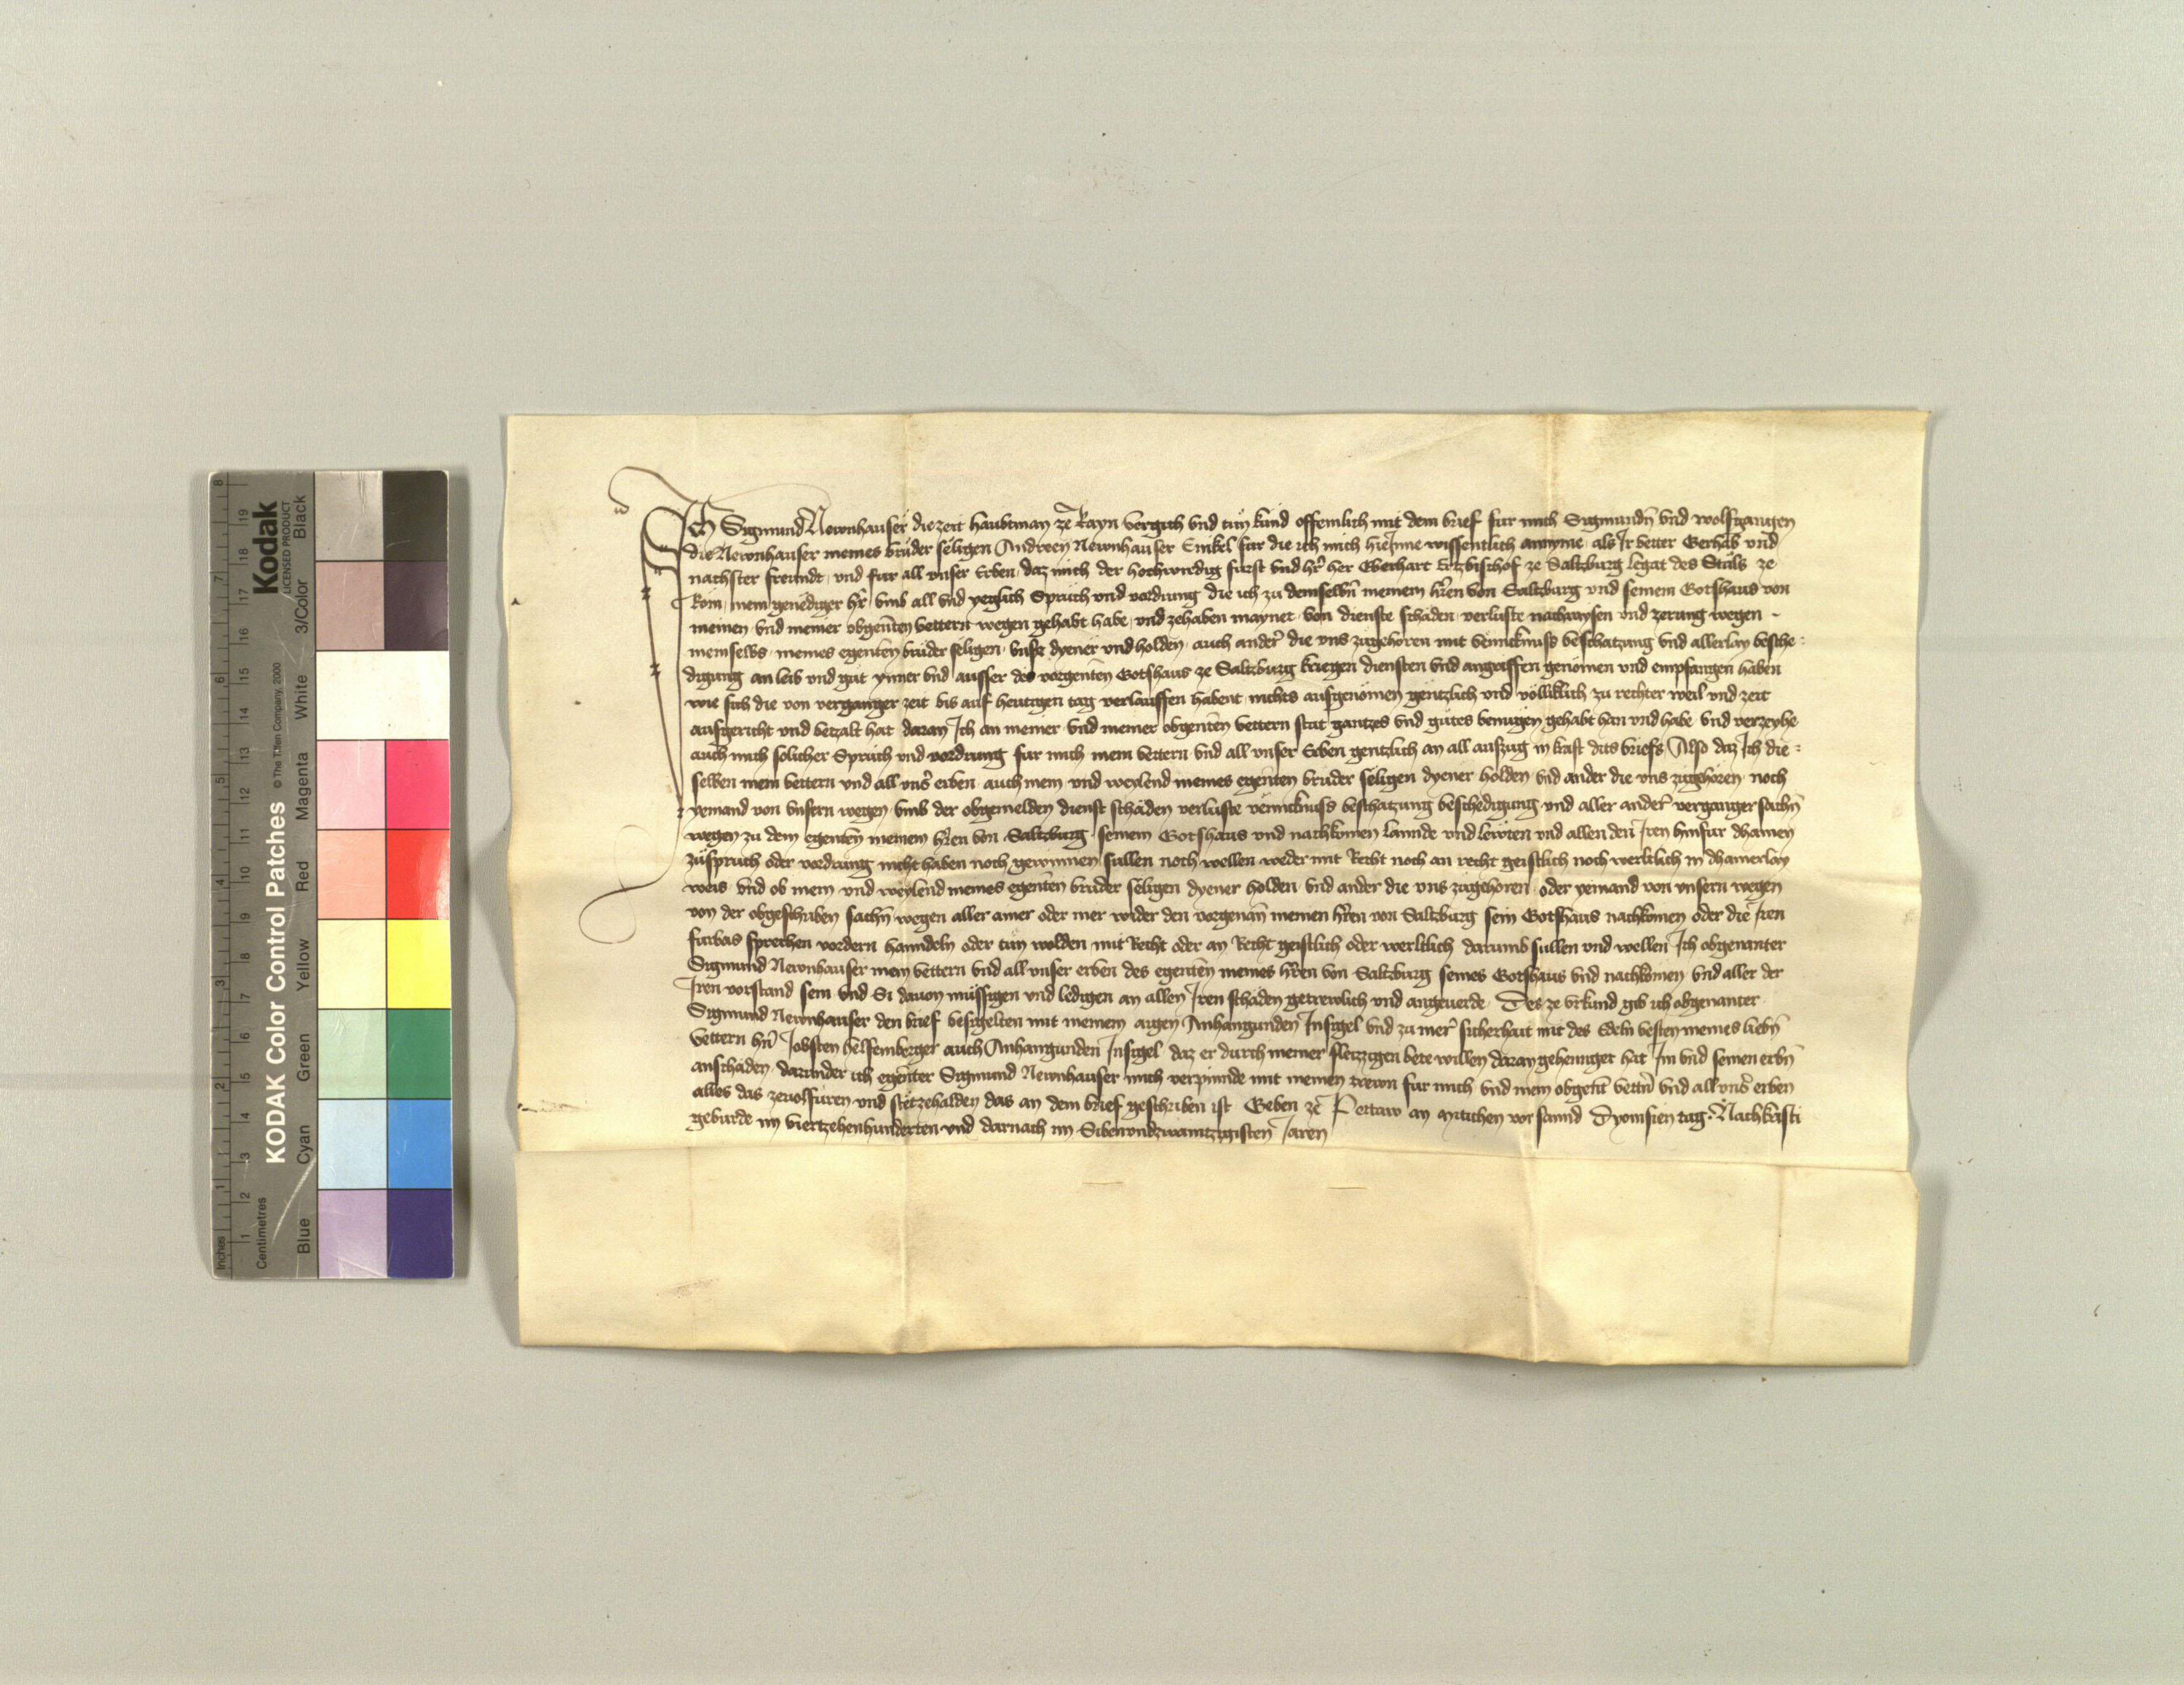 Ich Sigmund Newnhauser die zeit haubtman ze Rayn vergich vnd tun kund offennlich mit dem brief fur mich Sigmundn̄ vnd wolfgangen
die Newnhauser meines brůder séligen Andreen Newnhauser Enikel fur die ich mich hieInne wissentlich annyme als Ir vetter Gerhab vnd
nachster freundt vnd fur all vnser Erben daz mich der hochwirdig furst vnd hr̄ her Eberhart Ertzbischof ze Saltzburg legat des Stůls ze
Rom mein genédiger hr̄ vmb all vnd yeglich Spruch vnd vordrung die ich zu demselbn̄ meinem hr̄en von Saltzburg vnd seinem Gotshaus von
meinen vnd meiner obgen̄ten vettern wegen gehabt habe vnd zehaben maynet von dienste schäden verluste nachraysen vnd zerung wegen
meinselbs meines egen̄ten brůder séligen vnsr̄ dyener vnd holden auch ander̄ die vns zugehoren mit vénncknuss beschatzung vnd allerlay besche=
digung an leib vnd gůt ynner vnd ausser des vorgen̄ten Gotshaus ze Saltzburg kriegen diensten vnd angriffen genomen vnd empfangen haben
wie sich die von verganger zeit bis auf heutigen tag verlauffen habent nichts ausgenomen géntzlich vnd völliklich zu rechter weil vnd zeit
ausgericht vnd betzalt hat daran Ich an meiner vnd meiner obgen̄ten vettern stat gantzes vnd gůtes benůgen gehabt han vnd habe vnd verzeyhe
auch mich solicher Spruch vnd vordrung fur mich mein vettern vnd all vnser Erben gentzlich an all auszug in kraft dits briefs Also daz Ich die=
selben mein vettern vnd all vns̄ erben auch mein vnd weylend meines egen̄ten bruder séligen dyener holden vnd ander die vns zugehören noch
yemand von vnsern wegen vmb der obgemelden dienst schäden verluste vénncknuss beschatzung beschedigung vnd aller ander̄ verganger sachn̄
wegen zu dem egen̄ten meinem hr̄en von Saltzburg seinem Gotshaus vnd nachkomen lannde vnd lewten vnd allen den Iren hinfur dhainen
zůspruch oder vordrung nicht haben noch gewinnen sullen noch wellen weder mit Recht noch an recht geistlich noch werltlich in dhainerlay
weis vnd ob mein vnd weylend meines egen̄ten brůder séligen dyener holden vnd ander die vns zůgehoren oder yemand von vnsern wegen
von der obgeschriben sachn̄ wegen aller ainer oder mer wider den vorgenan̄ meinen hr̄en von Saltzburg sein Gotshaus nachkomen oder die Iren
furbas sprechen vordern hanndeln oder tůn wolden mit Recht oder an Recht geistlich oder werltlich darumb sullen vnd wellen Ich obgenanter
Sigmund Newnhauser mein vettern vnd all vnser erben des egen̄ten meines hr̄en von Saltzburg seines Gotshaus vnd nachkomen vnd aller der
Iren vorstand sein vnd Si dauon müssigen vnd ledigen an allen Iren schäden getrewlich vnd angeuerde Des ze vrkund gib ich obgenanter
Sigmund Newnhauser den brief besigelten mit meinem aigen Anhangunden Insigel vnd zu mer̄ sicherhait mit des Edeln vesten meines liebn̄
vettern hn̄ Jobsten helfemberger auch Anhangunden Insigel daz er durch meiner fleizzigen bete willen daran gehennget hat Im vnd seinen erbn̄
anschäden darunder ich egen̄ter Sigmund Newnhauser mich verpinnde mit meinen trewn fur mich vnd mein obgen̄t vettn̄ vnd all vns̄ erben
alles das zeuolfüren vnd stétzehalden das an dem brief geschriben ist Geben ze Pettaw an mitichen vor sannd Dyonisien tag Nach kristi
gebůrde im viertzehenhunderten vnd darnach im Sibenvndzwaintzigisten Jaren
KODAK Color Control Patches
© The Tiffen Company, 2000
Kodak
LICENSED PRODUCT
Inches
1 2 3 4 5 6 7 8
Centimetres
1 2 3 4 5 6 7 8 9 10 11 12 13 14 15 16 17 18 19
Blue Cyan Green Yellow Red Magenta White 3/Color Black